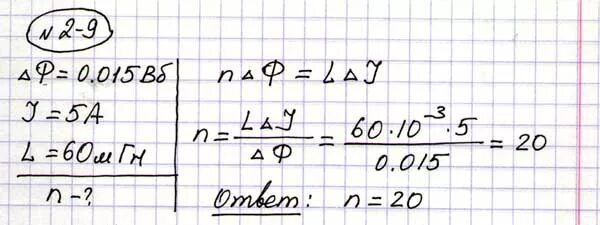 N 2-9
ΔФ = 0.015 Вб
J = 5А
L = 60мГн
n - ?
nΔФ = LΔJ
n = LΔJ / ΔФ = 60·10⁻³·5 / 0.015 = 20
Ответ: n = 20